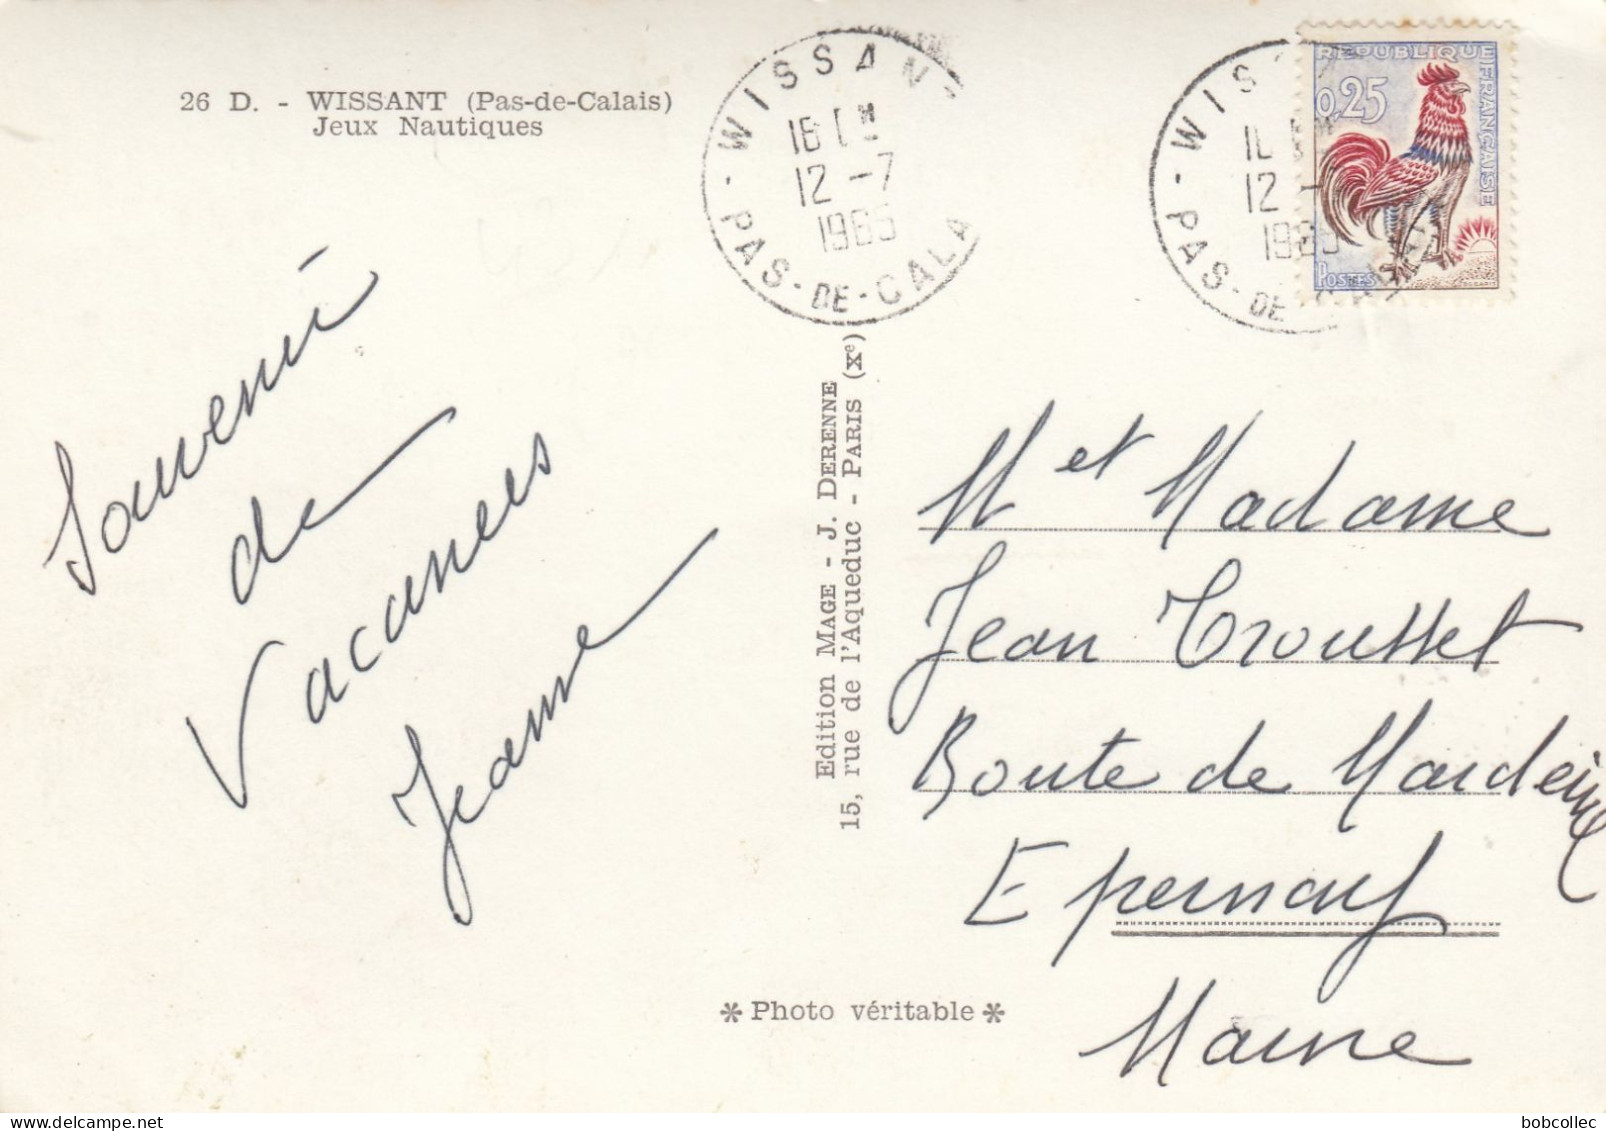 26 D. - WISSANT (Pas-de-Calais)
Jeux Nautiques
WISSAN
12 -7
1965
PAS-DE-CALA
REPUBLIQUE FRANÇAISE
0,25
POSTES
DECARIS
WIS
12 -
PAS-DE-CALAIS
Souvenir
de
Vacances
Jeanne
Edition MAGE - J. DERENNE
15, rue de l'Aqueduc - PARIS (Xe)
M et Madame
Jean Trousset
Route de
Epernay
Marne
* Photo véritable *
bobcollec